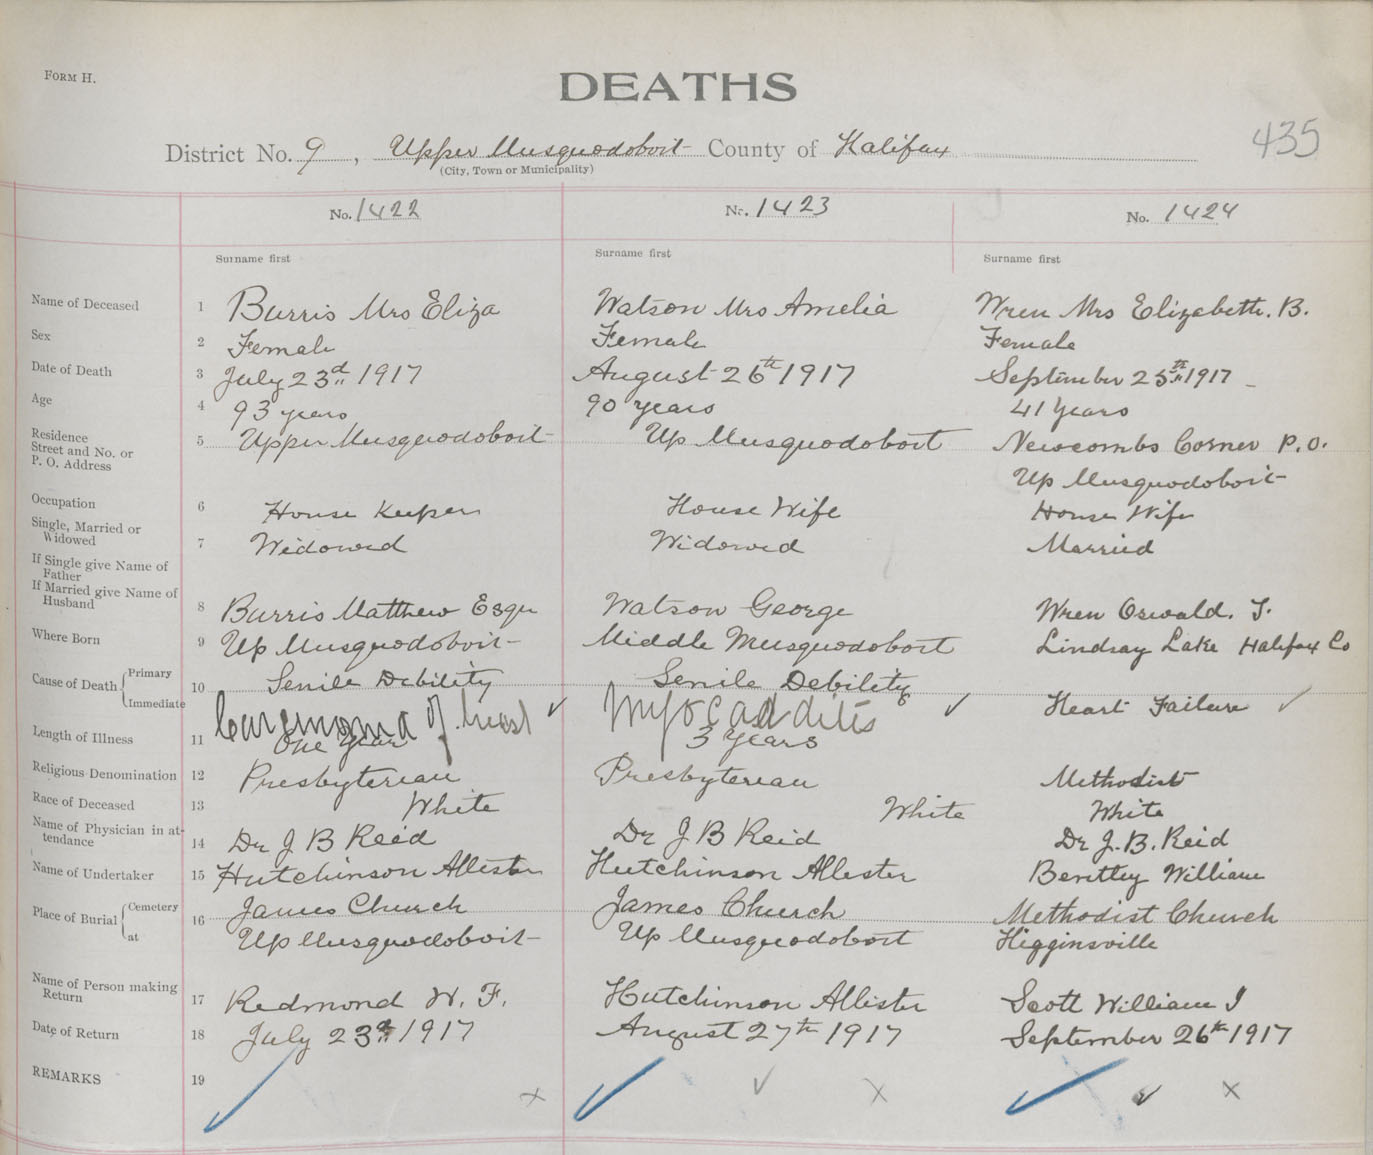 FORM H.
DEATHS
435
District No. 9, Upper Musquodoboit County of Halifax
(City, Town or Municipality)
No. 1422 No. 1423 No. 1424
Surname first Surname first Surname first
Name of Deceased 1 Burris Mrs Eliza Watson Mrs Amelia Wren Mrs Elizabeth. B.
Sex 2 Female Female Female
Date of Death 3 July 23rd 1917 August 26th 1917 September 25th 1917
Age 4 93 years 90 years 41 Years
Residence
Street and No. or
P. O. Address 5 Upper Musquodoboit Up Musquodoboit Newcombs Corner P.O.
Up Musquodoboit
Occupation 6 House Keeper House Wife House Wife
Single, Married or
Widowed 7 Widowed Widowed Married
If Single give Name of
Father
If Married give Name of
Husband 8 Burris Matthew Esqu Watson George Wren Oswald. T.
Where Born 9 Up Musquodoboit Middle Musquodoboit Lindsay Lake Halifax Co
Cause of Death Primary 10 Senile Debility Senile Debility
Immediate Carcinoma of breast ✓ Myocarditis ✓ Heart Failure ✓
Length of Illness 11 One Year 3 Years
Religious Denomination 12 Presbyterian Presbyterian Methodist
Race of Deceased 13 White White White
Name of Physician in at-
tendance 14 Dr J B Reid Dr J B Reid Dr J. B. Reid
Name of Undertaker 15 Hutchinson Allister Hutchinson Allester Bentley William
Place of Burial Cemetery 16 James Church James Church Methodist Church
at Up Musquodoboit Up Musquodoboit Higginsville
Name of Person making
Return 17 Redmond W. F. Hutchinson Allister Scott William J
Date of Return 18 July 23rd 1917 August 27th 1917 September 26th 1917
REMARKS 19 ✓ x ✓ ✓ x ✓ ✓ x